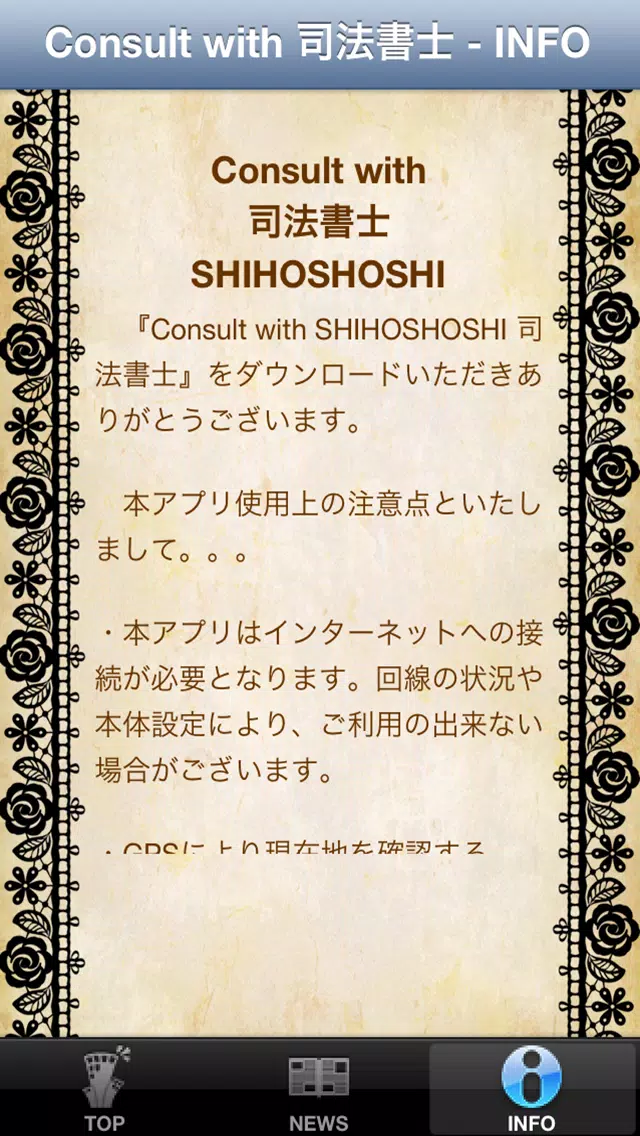 Consult with 司法書士 - INFO
Consult with
司法書士
SHIHOSHOSHI
『Consult with SHIHOSHOSHI 司
法書士』をダウンロードいただきあ
りがとうございます。
本アプリ使用上の注意点といたし
まして。。。
・本アプリはインターネットへの接
続が必要となります。回線の状況や
本体設定により、ご利用の出来ない
場合がございます。
・GPSにより現在地を確認する
TOP
NEWS
INFO